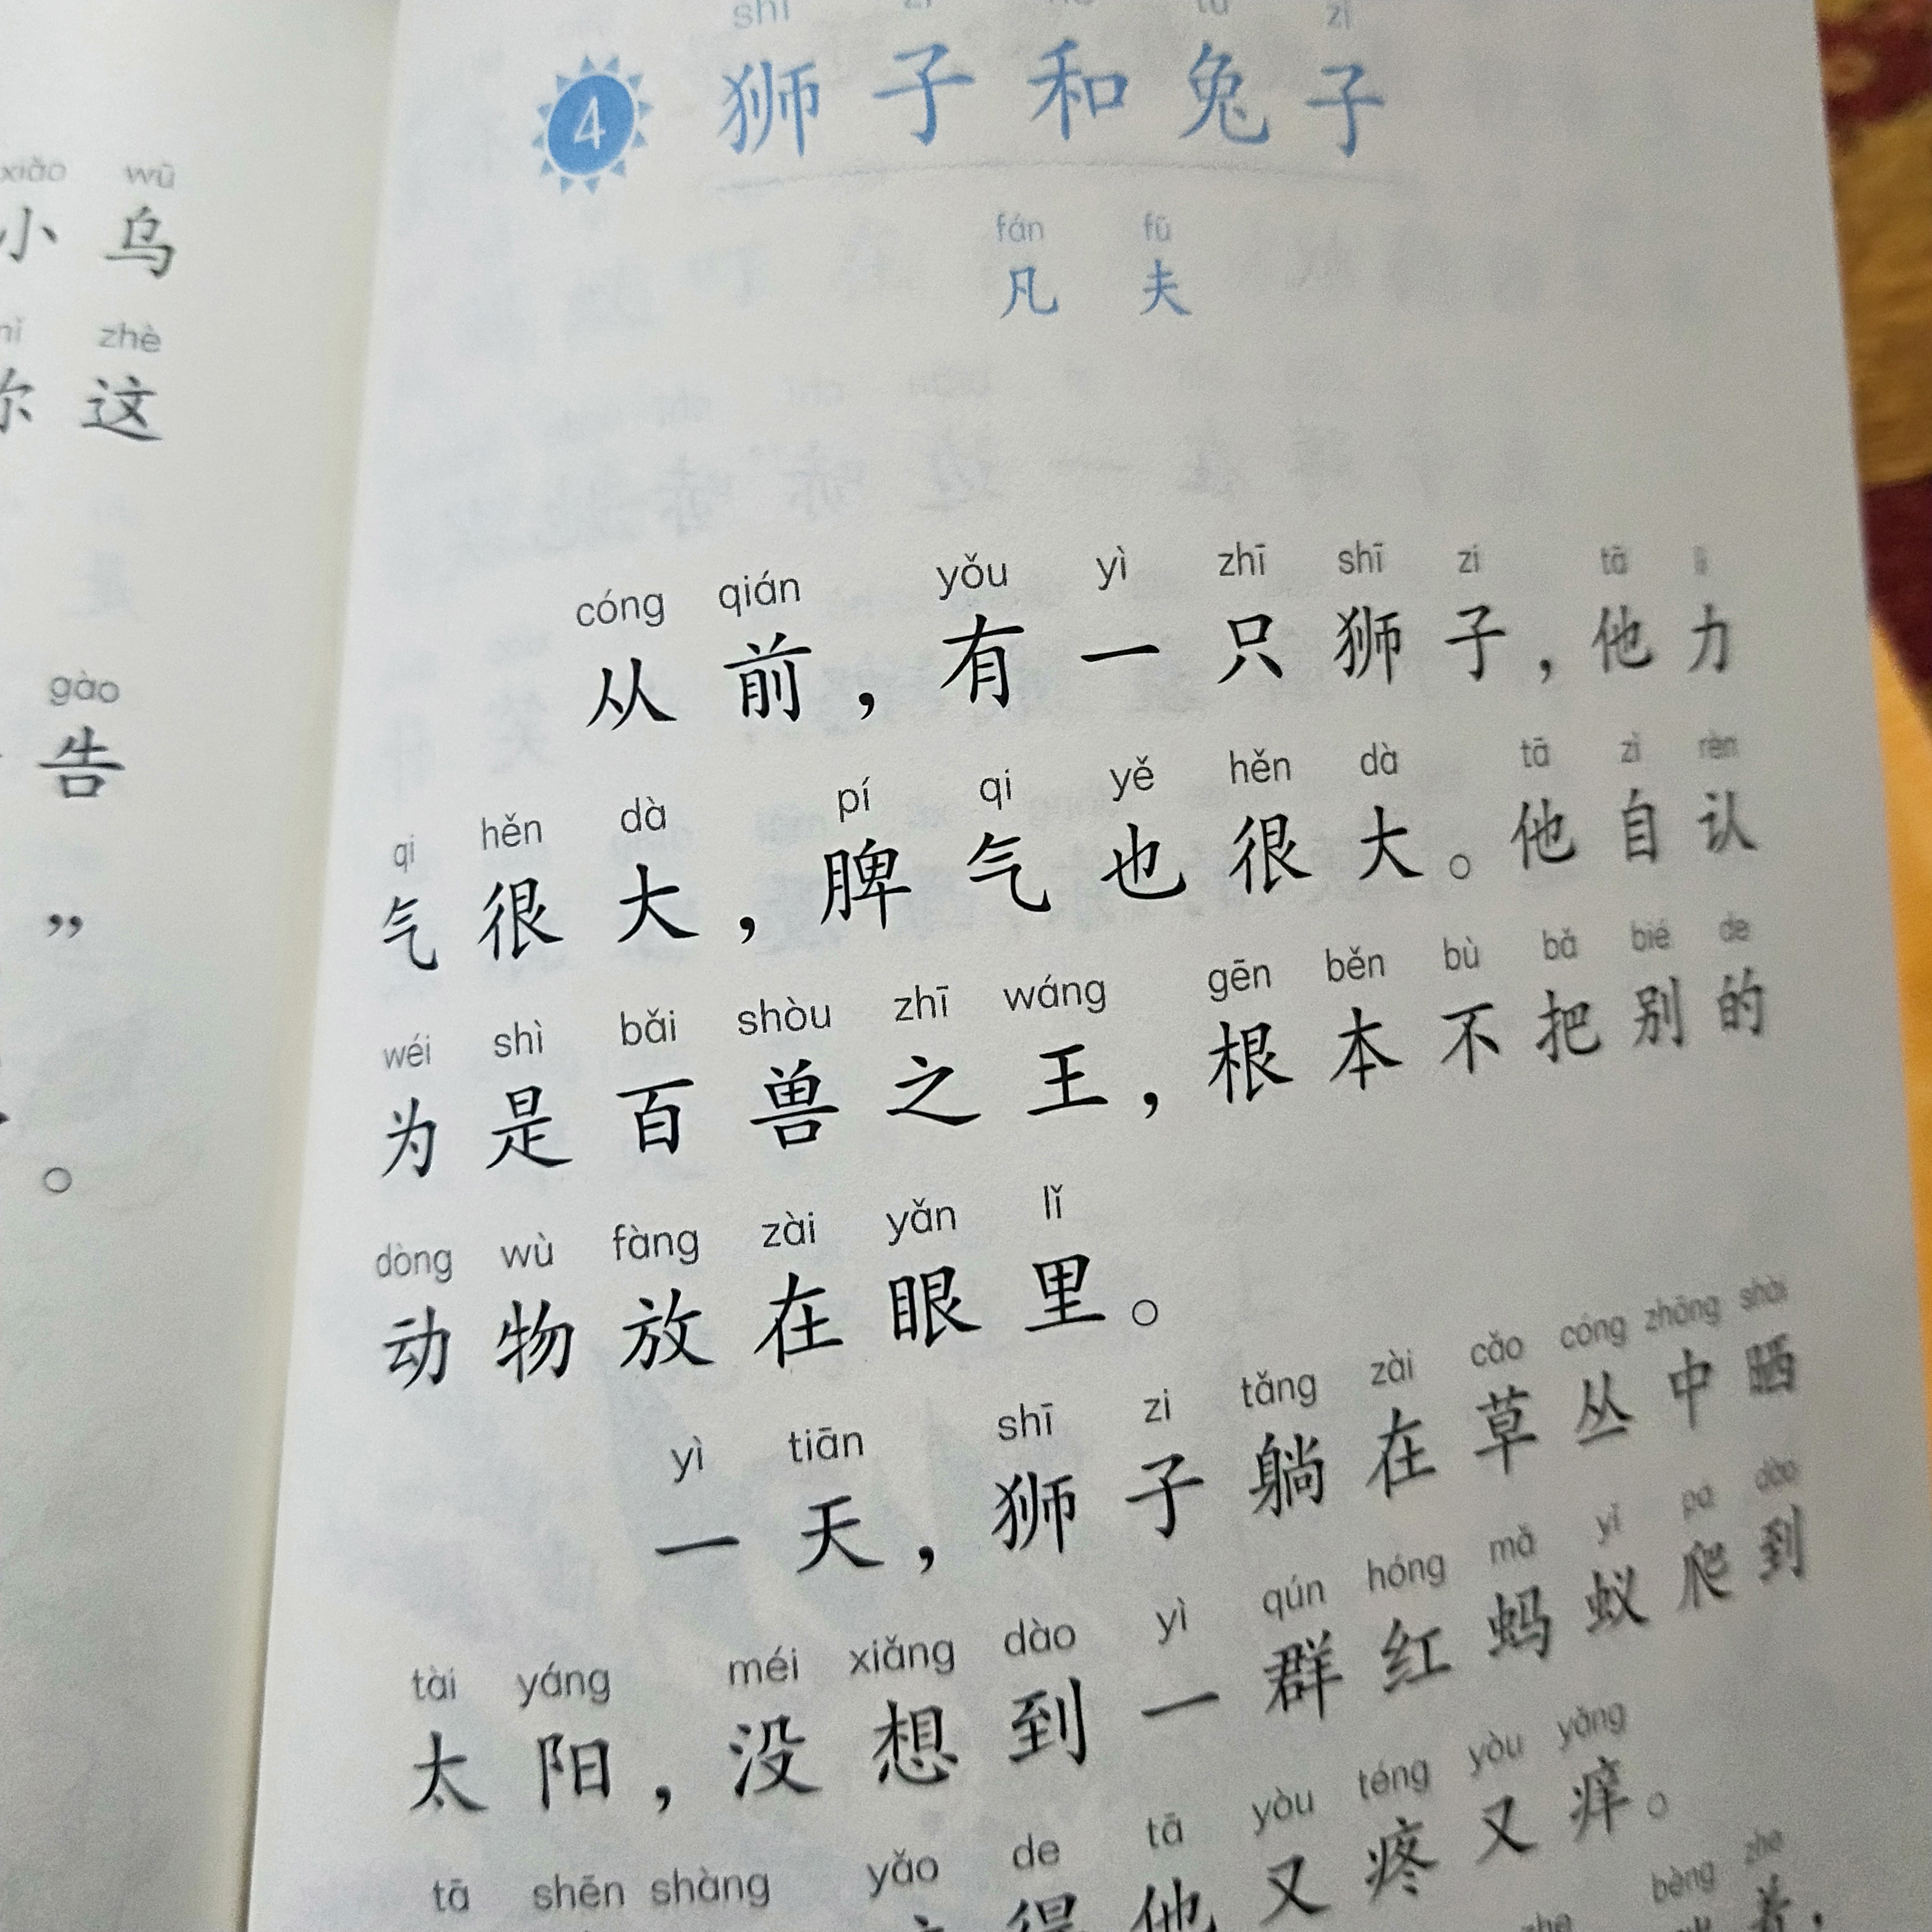 xiǎo wū
小 乌
zhè
你 这
gào
告
”
。
shī zi
4 狮 子 和 兔 子
fán fū
凡 夫
cóng qián yǒu yì zhī shī zi tā lì
从 前 ， 有 一 只 狮 子 ， 他 力
qi hěn dà pí qi yě hěn dà tā zì rèn
气 很 大 ， 脾 气 也 很 大 。 他 自 认
wéi shì bǎi shòu zhī wáng gēn běn bù bǎ bié de
为 是 百 兽 之 王 ， 根 本 不 把 别 的
dòng wù fàng zài yǎn lǐ
动 物 放 在 眼 里 。
yì tiān shī zi tǎng zài cǎo cóng zhōng shài
一 天 ， 狮 子 躺 在 草 丛 中 晒
tài yáng méi xiǎng dào yì qún hóng mǎ yǐ pá dào
太 阳 ， 没 想 到 一 群 红 蚂 蚁 爬 到
tā shēn shàng yǎo de tā yòu téng yòu yǎng
得 他 又 疼 又 痒 。
bèng zhe
着 ，
zhe